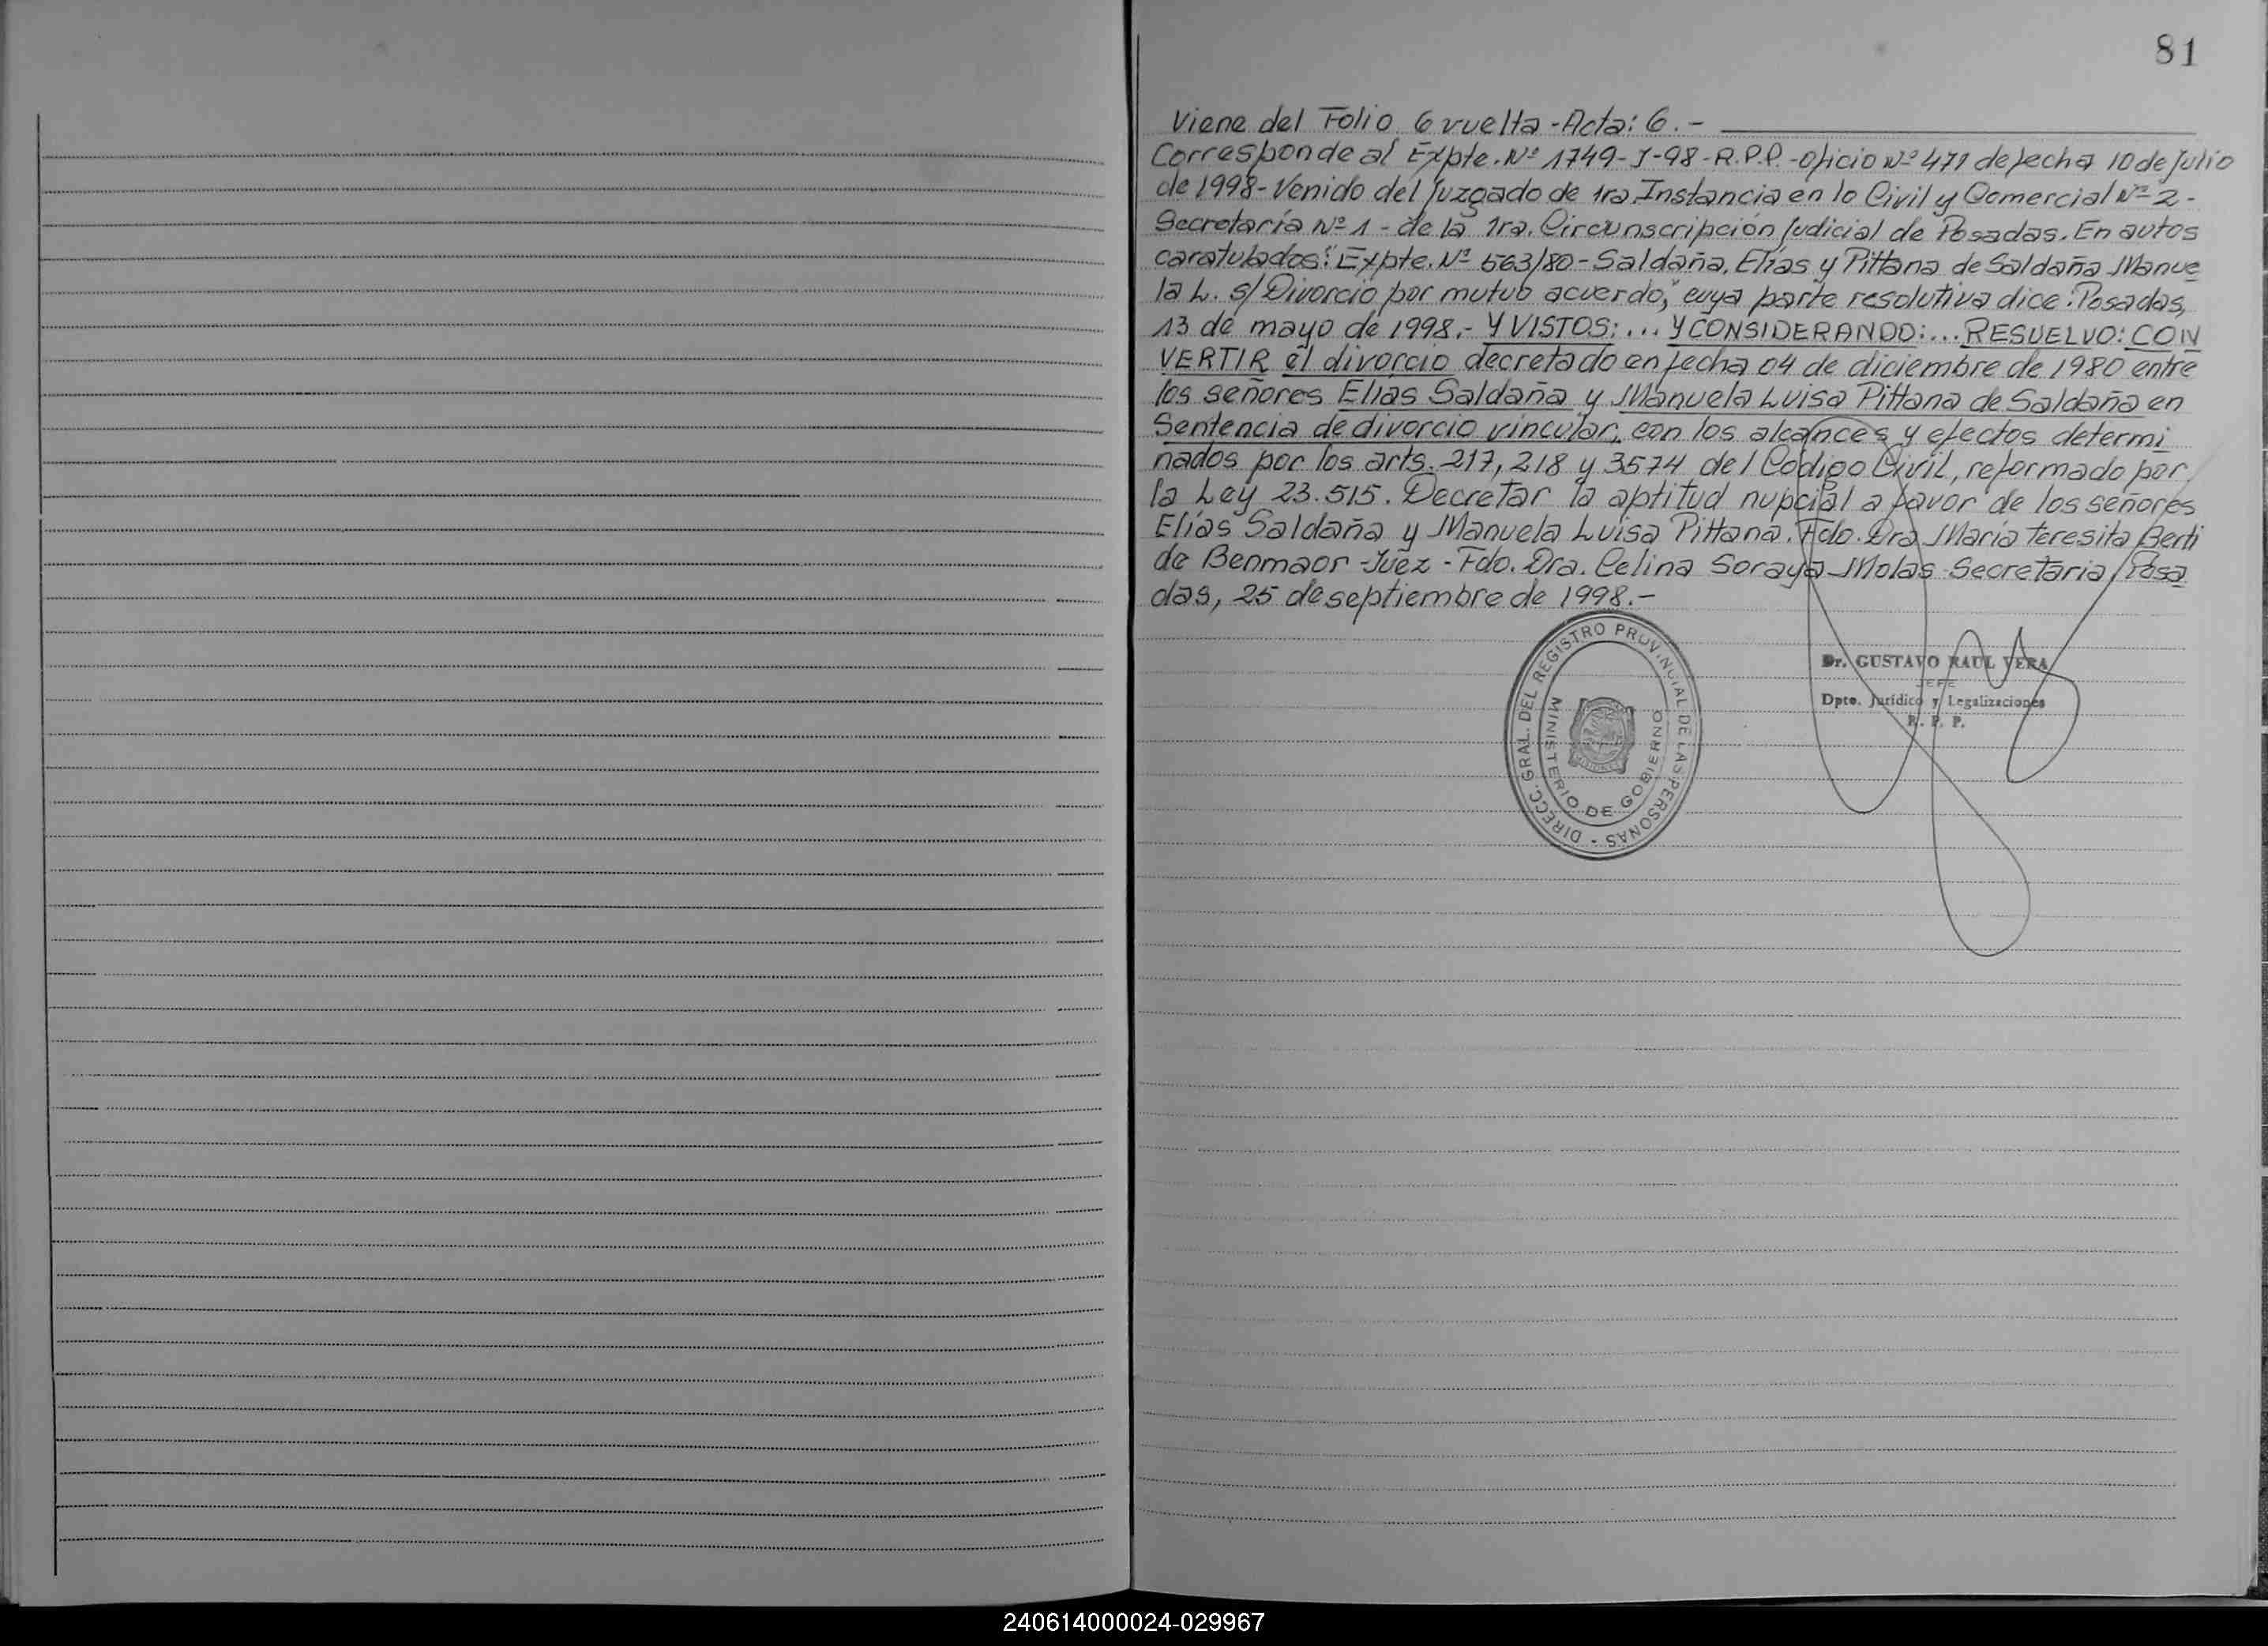 81
Viene del Folio 6 vuelta - Acta: 6.-
Corresponde al Expte. Nº 1749-J-98-R.P.P.-Oficio Nº 471 de fecha 10 de Julio
de 1998-Venido del Juzgado de 1ra Instancia en lo Civil y Comercial Nº 2-
Secretaría Nº 1 - de la 1ra. Circunscripción Judicial de Posadas. En autos
caratulados: "Expte. Nº 563/80 - Saldaña, Elías y Pittana de Saldaña Manue
la L. s/ Divorcio por mutuo acuerdo," cuya parte resolutiva dice: Posadas,
13 de mayo de 1998.- Y VISTOS:... Y CONSIDERANDO:... RESUELVO: CON
VERTIR el divorcio decretado en fecha 04 de diciembre de 1980 entre
los señores Elías Saldaña y Manuela Luisa Pittana de Saldaña en
Sentencia de divorcio vincular, con los alcances y efectos determi
nados por los arts. 217, 218 y 3574 del Código Civil, reformado por
la Ley 23.515. Decretar la aptitud nupcial a favor de los señores
Elías Saldaña y Manuela Luisa Pittana. Fdo. Dra María Teresita Berti
de Benmaor - Juez - Fdo. Dra. Celina Soraya Molas - Secretaria / Posa
das, 25 de septiembre de 1998.-
DIRECC. GRAL. DEL REGISTRO PROVINCIAL DE LAS PERSONAS -
MINISTERIO DE GOBIERNO
Dr. GUSTAVO RAUL VERA
JEFE
Dpto. Jurídico y Legalizaciones
R. P. P.
240614000024-029967